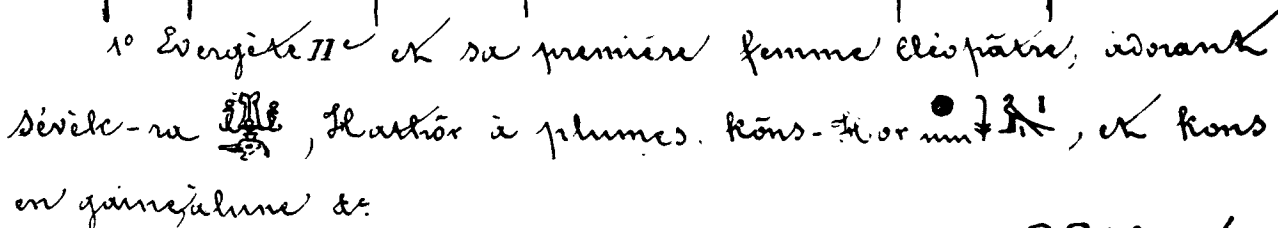 1º Evergète IIe et sa première femme Cléopâtre, adorant
Sévèk-ra, Hathôr à plumes. Kôns-Hor, et Kons
en gaine, à lune &c.